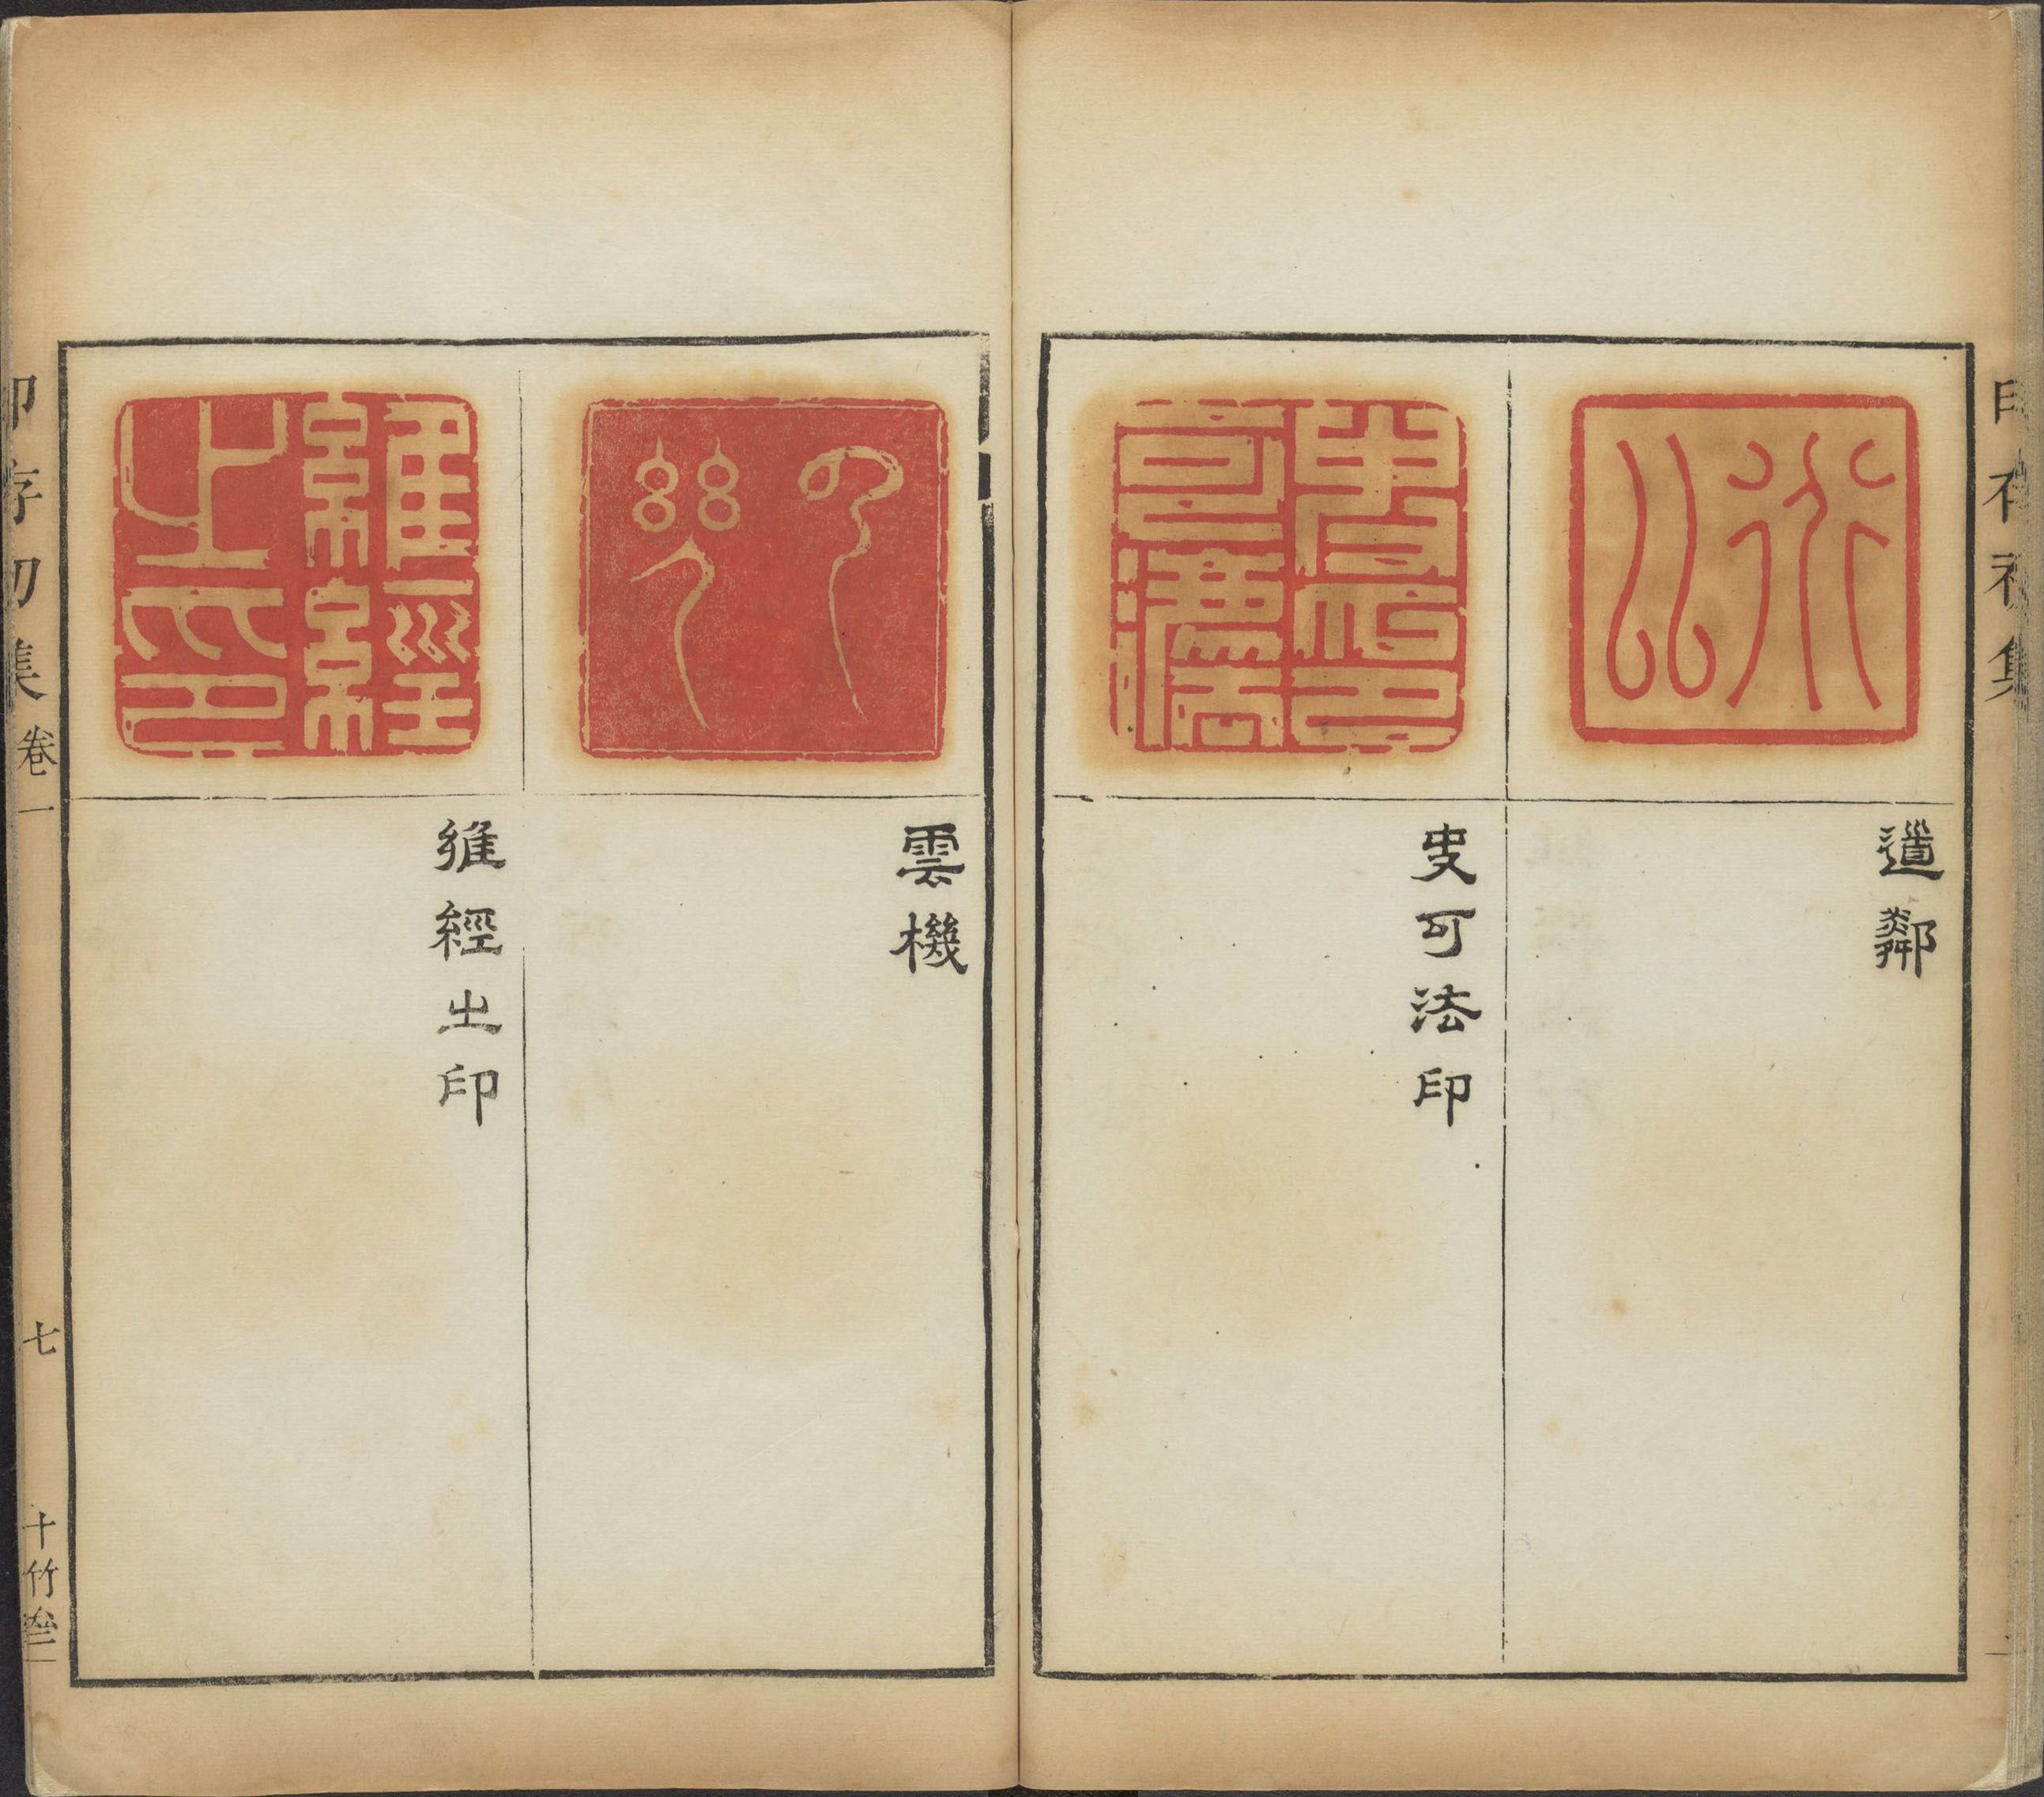 道鄰
史可法印
雲機
維經之印
印存初集
卷一
七
十竹齋